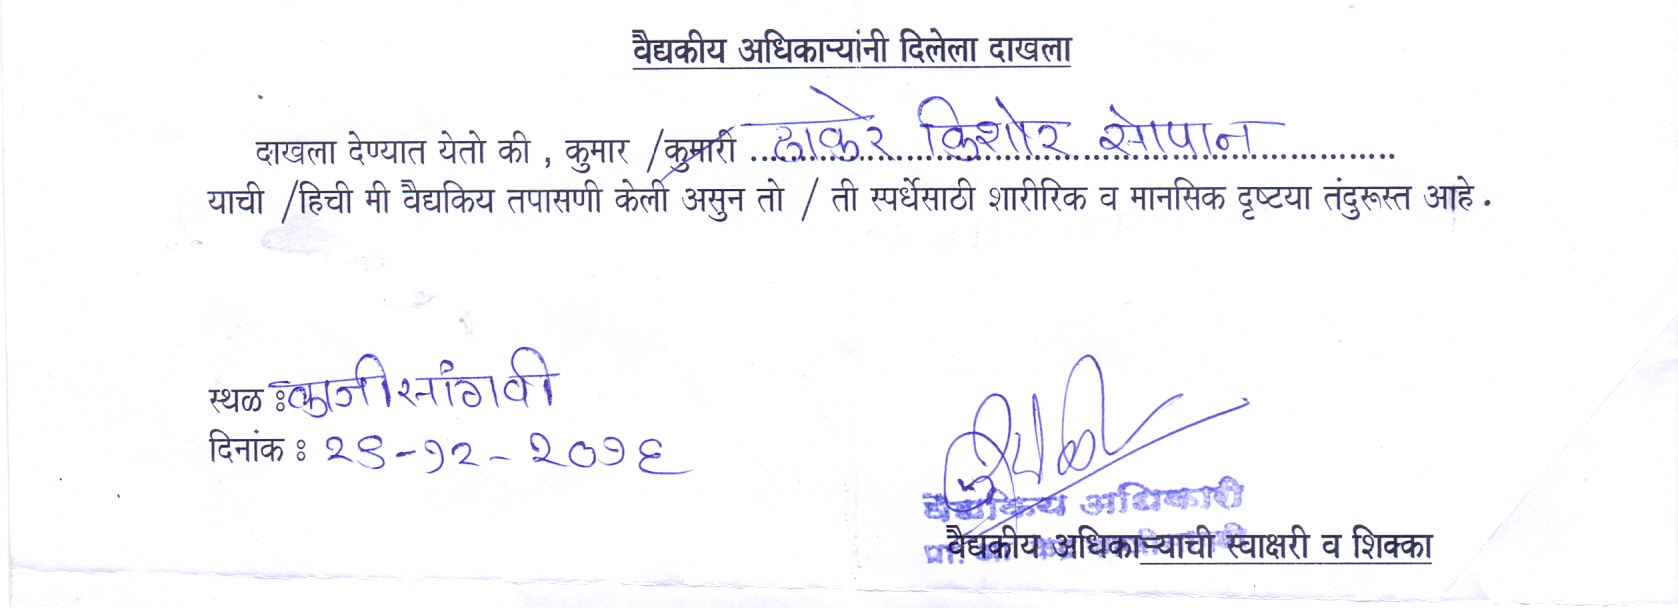 वैद्यकीय अधिकाऱ्यांनी दिलेला दाखला
दाखला देण्यात येतो की , कुमार /कुमारी ठाकरे किशोर सोपान
याची /हिची मी वैद्यकिय तपासणी केली असुन तो / ती स्पर्धेसाठी शारीरिक व मानसिक दृष्टया तंदुरूस्त आहे .
स्थळ : काजीसांगवी
दिनांक : २९-१२-२०१६
वैद्यकिय अधिकारी
वैद्यकीय अधिकाऱ्याची स्वाक्षरी व शिक्का